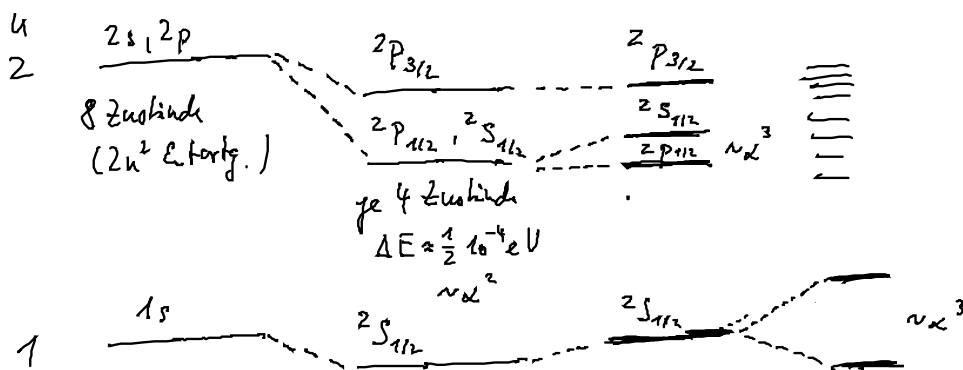 n
2
2s, 2p
8 Zustände
(2n² Entartg.)
²P₃/₂
²P₁/₂, ²S₁/₂
je 4 Zustände
ΔE ≈ ½ 10⁻⁴ eV
~α²
²P₃/₂
²S₁/₂
²P₁/₂
~α³
1
1s
²S₁/₂
²S₁/₂
~α³